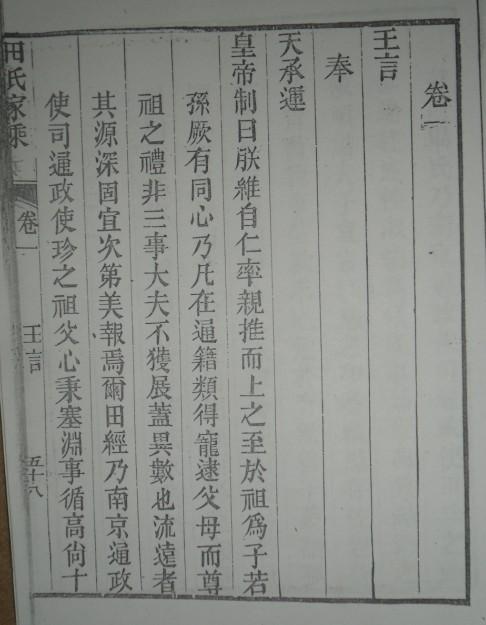 卷一
王言
奉
天承運
皇帝制曰朕維自仁率親推而上之至於祖爲子若
孫厥有同心乃凡在通籍類得寵逮父母而尊
祖之禮非三事大夫不獲展蓋異數也流遠者
其源深固宜次第美報焉爾田經乃南京通政
使司通政使珍之祖父心秉塞淵事循高尙十
田氏家乘
卷一
王言
五十八